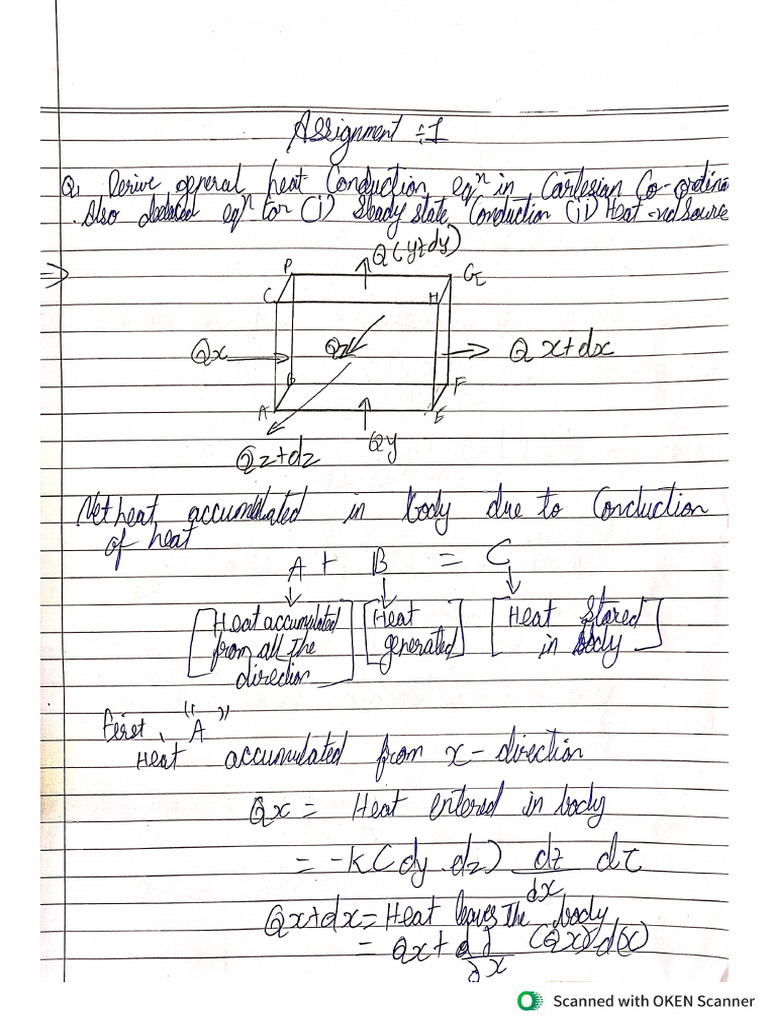 Assignment :1
Q1 Derive general heat Conduction eqn in Cartesian Co-ordina
Also deduced eqn for (i) Steady state Conduction (ii) Heat Source
⇒
Q(y+dy)
P
G
C
H
Qx
Qz
Q x+dx
B
F
A
E
Qz+dz
Qy
Net heat accumulated in body due to Conduction
of heat
A + B = C
Heat accumulated from all the direction
Heat generated
Heat Stored in body
First, "A"
Heat accumulated from x-direction
Qx = Heat entered in body
= -k(dy.dz) dt/dx dτ
Qx+dx = Heat leaves the body
= Qx + ∂/∂x (Qx) d(x)
Scanned with OKEN Scanner